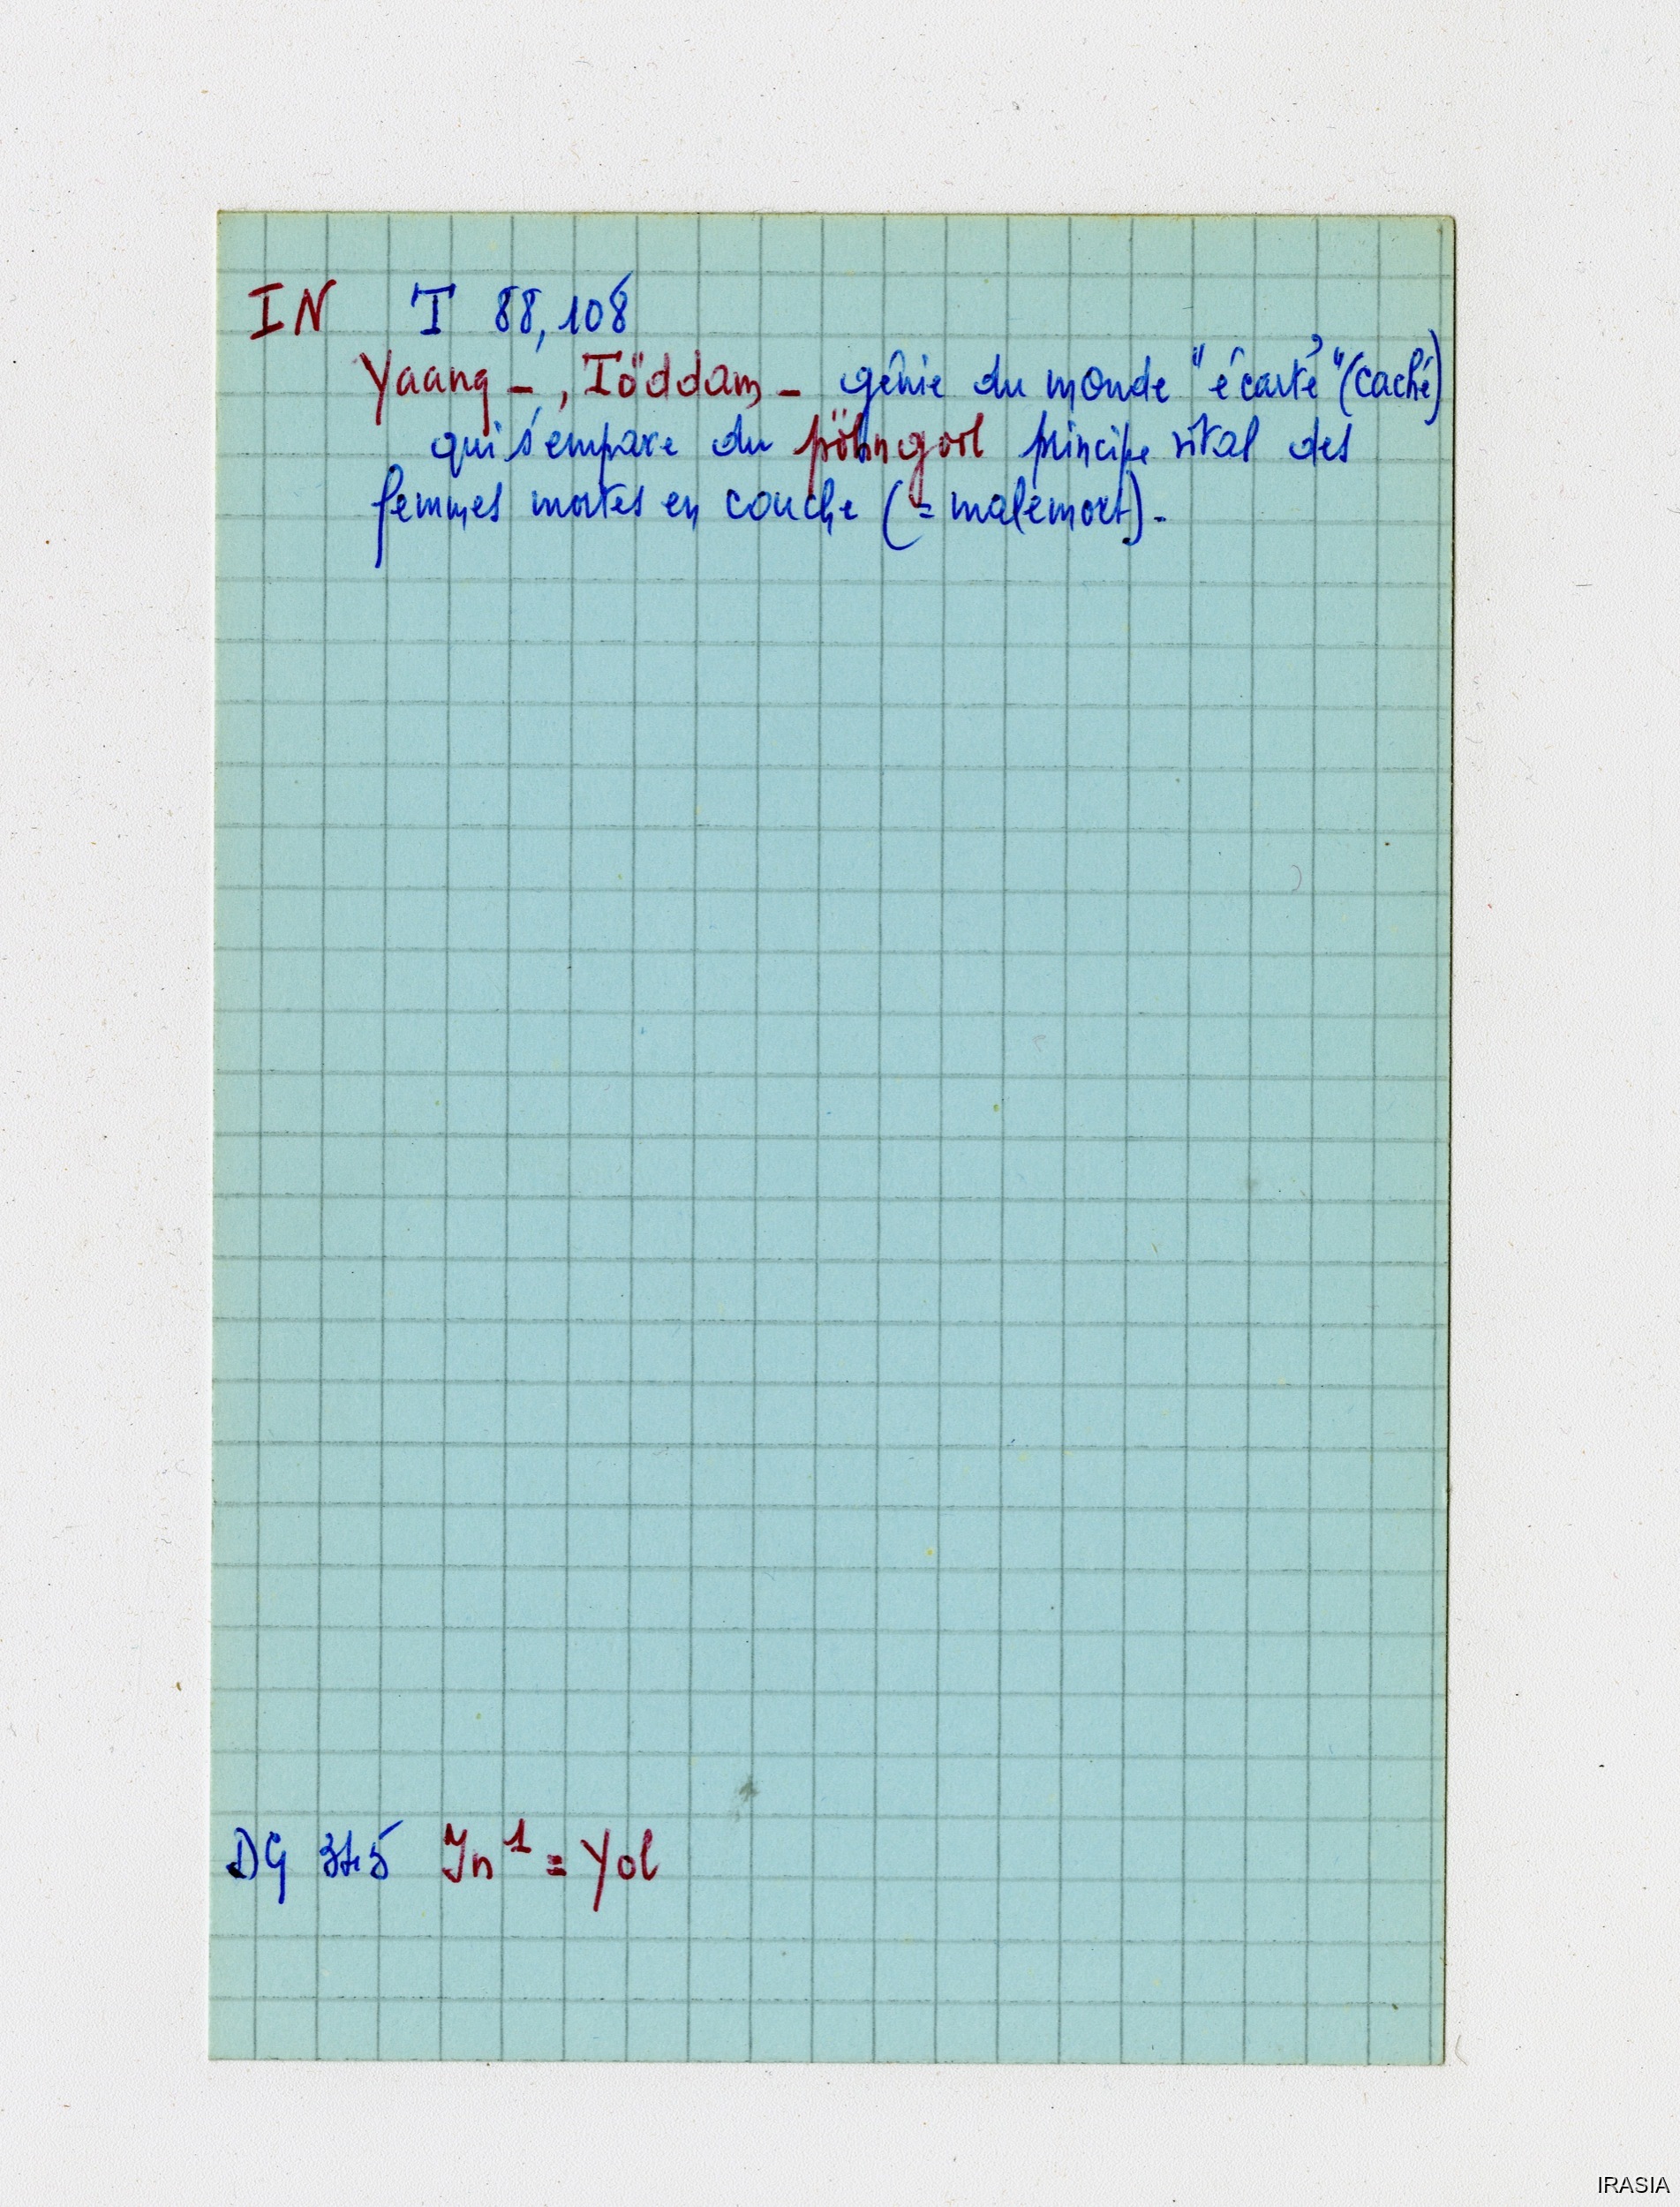 IN T 88, 108
Yaang -, Töddam - génie du monde "écarté" (caché)
qui s'empare du pöhngool principe vital des
femmes mortes en couche (= malemort).
DG In¹ = Yol
IRASIA